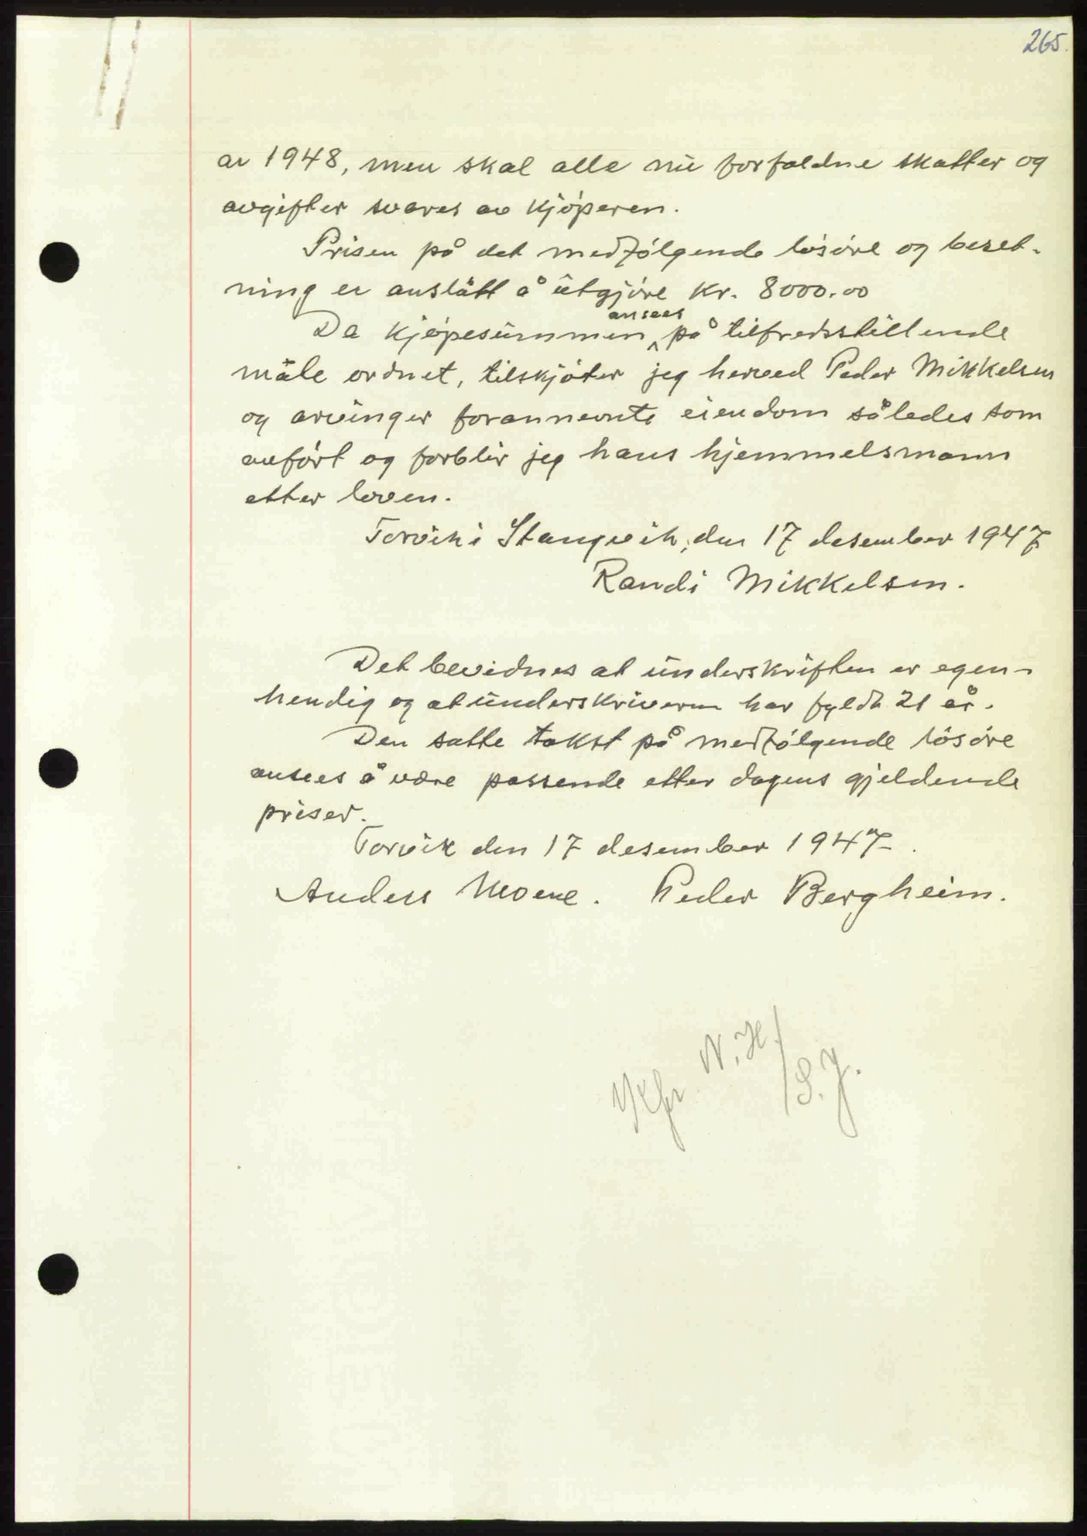 265.
ar 1948, men skal alle nu forfaldne skatter og
avgifter svares av kjøperen.
Prisen på det medfølgende løsøre og beset-
ning er anslått å utgjøre kr. 8000.00
ansees
Da kjøpesummen på tilfredsstillende
måte ordnet, tilskjøter jeg herved Peder Mikkelsen
og arvinger forannevnte eiendom således som
anført og forblir jeg hans hjemmelsmann
etter loven.
Torvik i Stangvik, den 17 desember 1947
Randi Mikkelsen.
Det bevidnes at underskriften er egen-
hendig og at underskriveren har fyldt 21 år.
Den satte takst på medfølgende løsøre
ansees å være passende etter dagens gjeldende
priser.
Torvik den 17 desember 1947.
Anders Moene. Peder Bergheim.
N. H. / S. J.